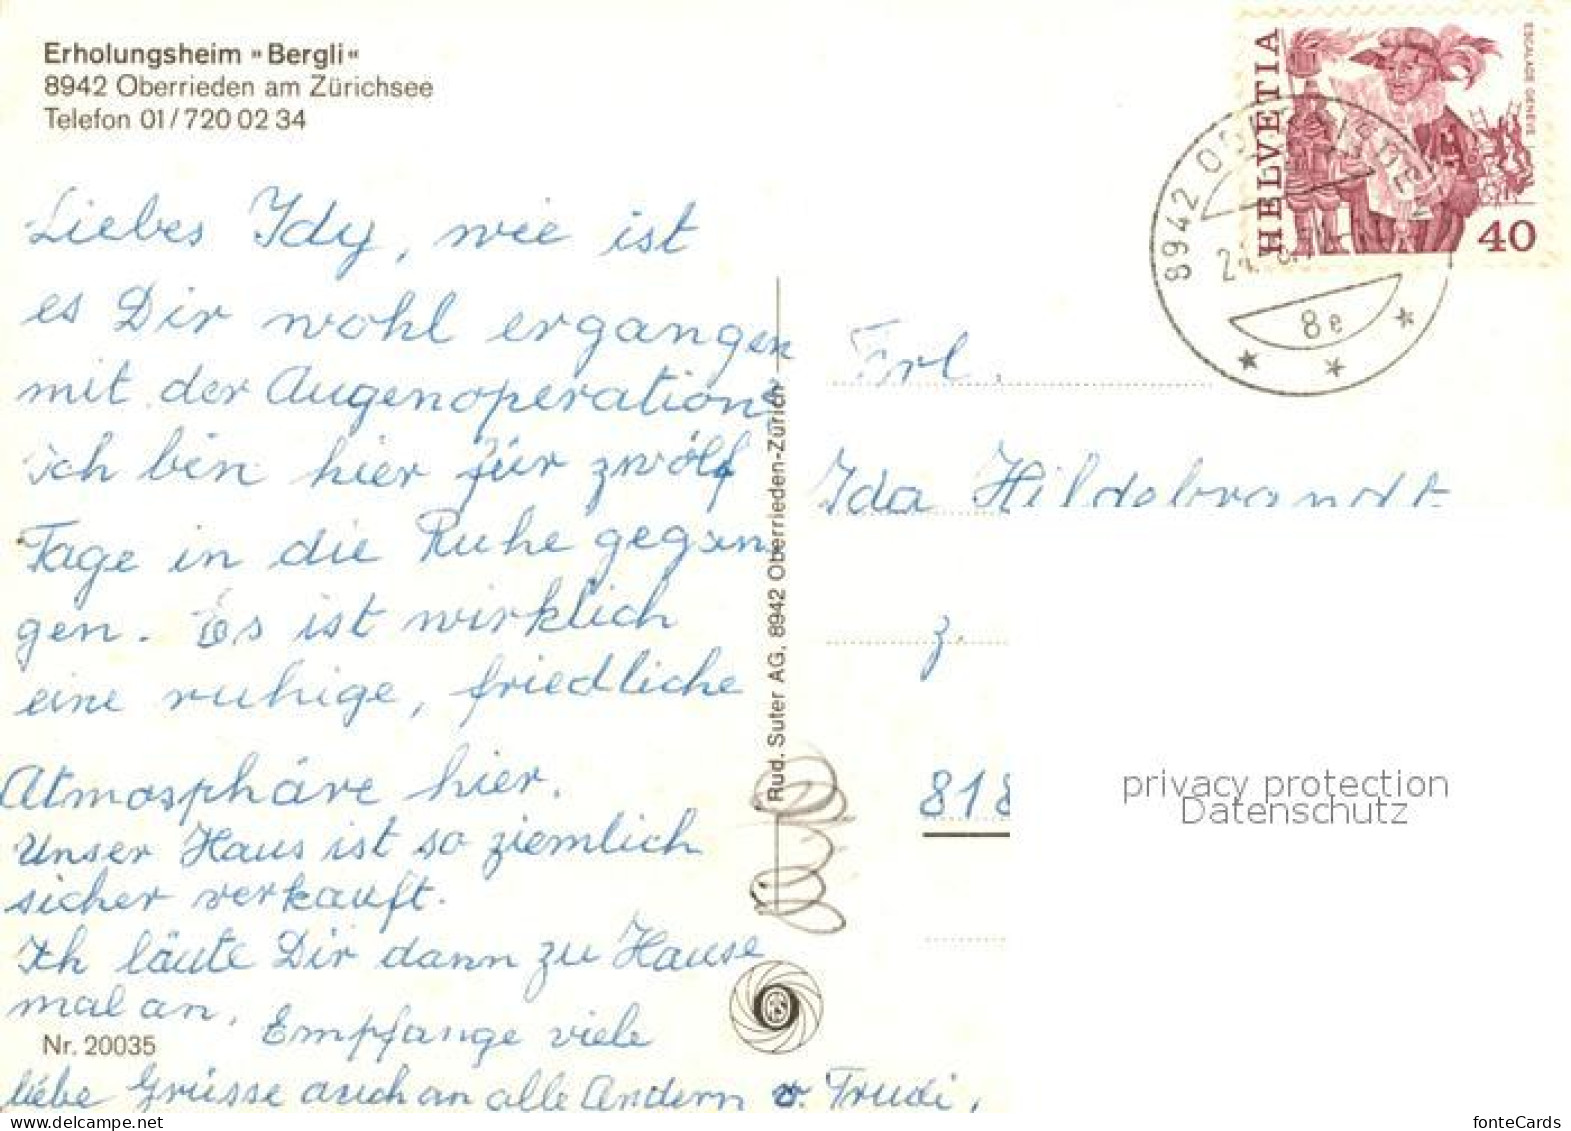 Erholungsheim »Bergli«
8942 Oberrieden am Zürichsee
Telefon 01/720 02 34
Liebes Idy, wie ist
es Dir wohl ergangen
mit der Augenoperation?
ich bin hier für zwölf
Tage in die Ruhe gegan
gen. Es ist wirklich
eine ruhige, friedliche
Atmosphäre hier.
Unser Haus ist so ziemlich
sicher verkauft.
Ich läute Dir dann zu Hause
mal an. Empfange viele
liebe Grüsse auch an alle Andern v. Trudi,
Nr. 20035
Rud. Suter AG, 8942 Oberrieden-Zürich
HELVETIA
ESCALADE GENÈVE
40
8942 OBERRIEDEN
8e
Frl.
Ida Hildebrandt
z.
818
privacy protection
Datenschutz
fonteCards